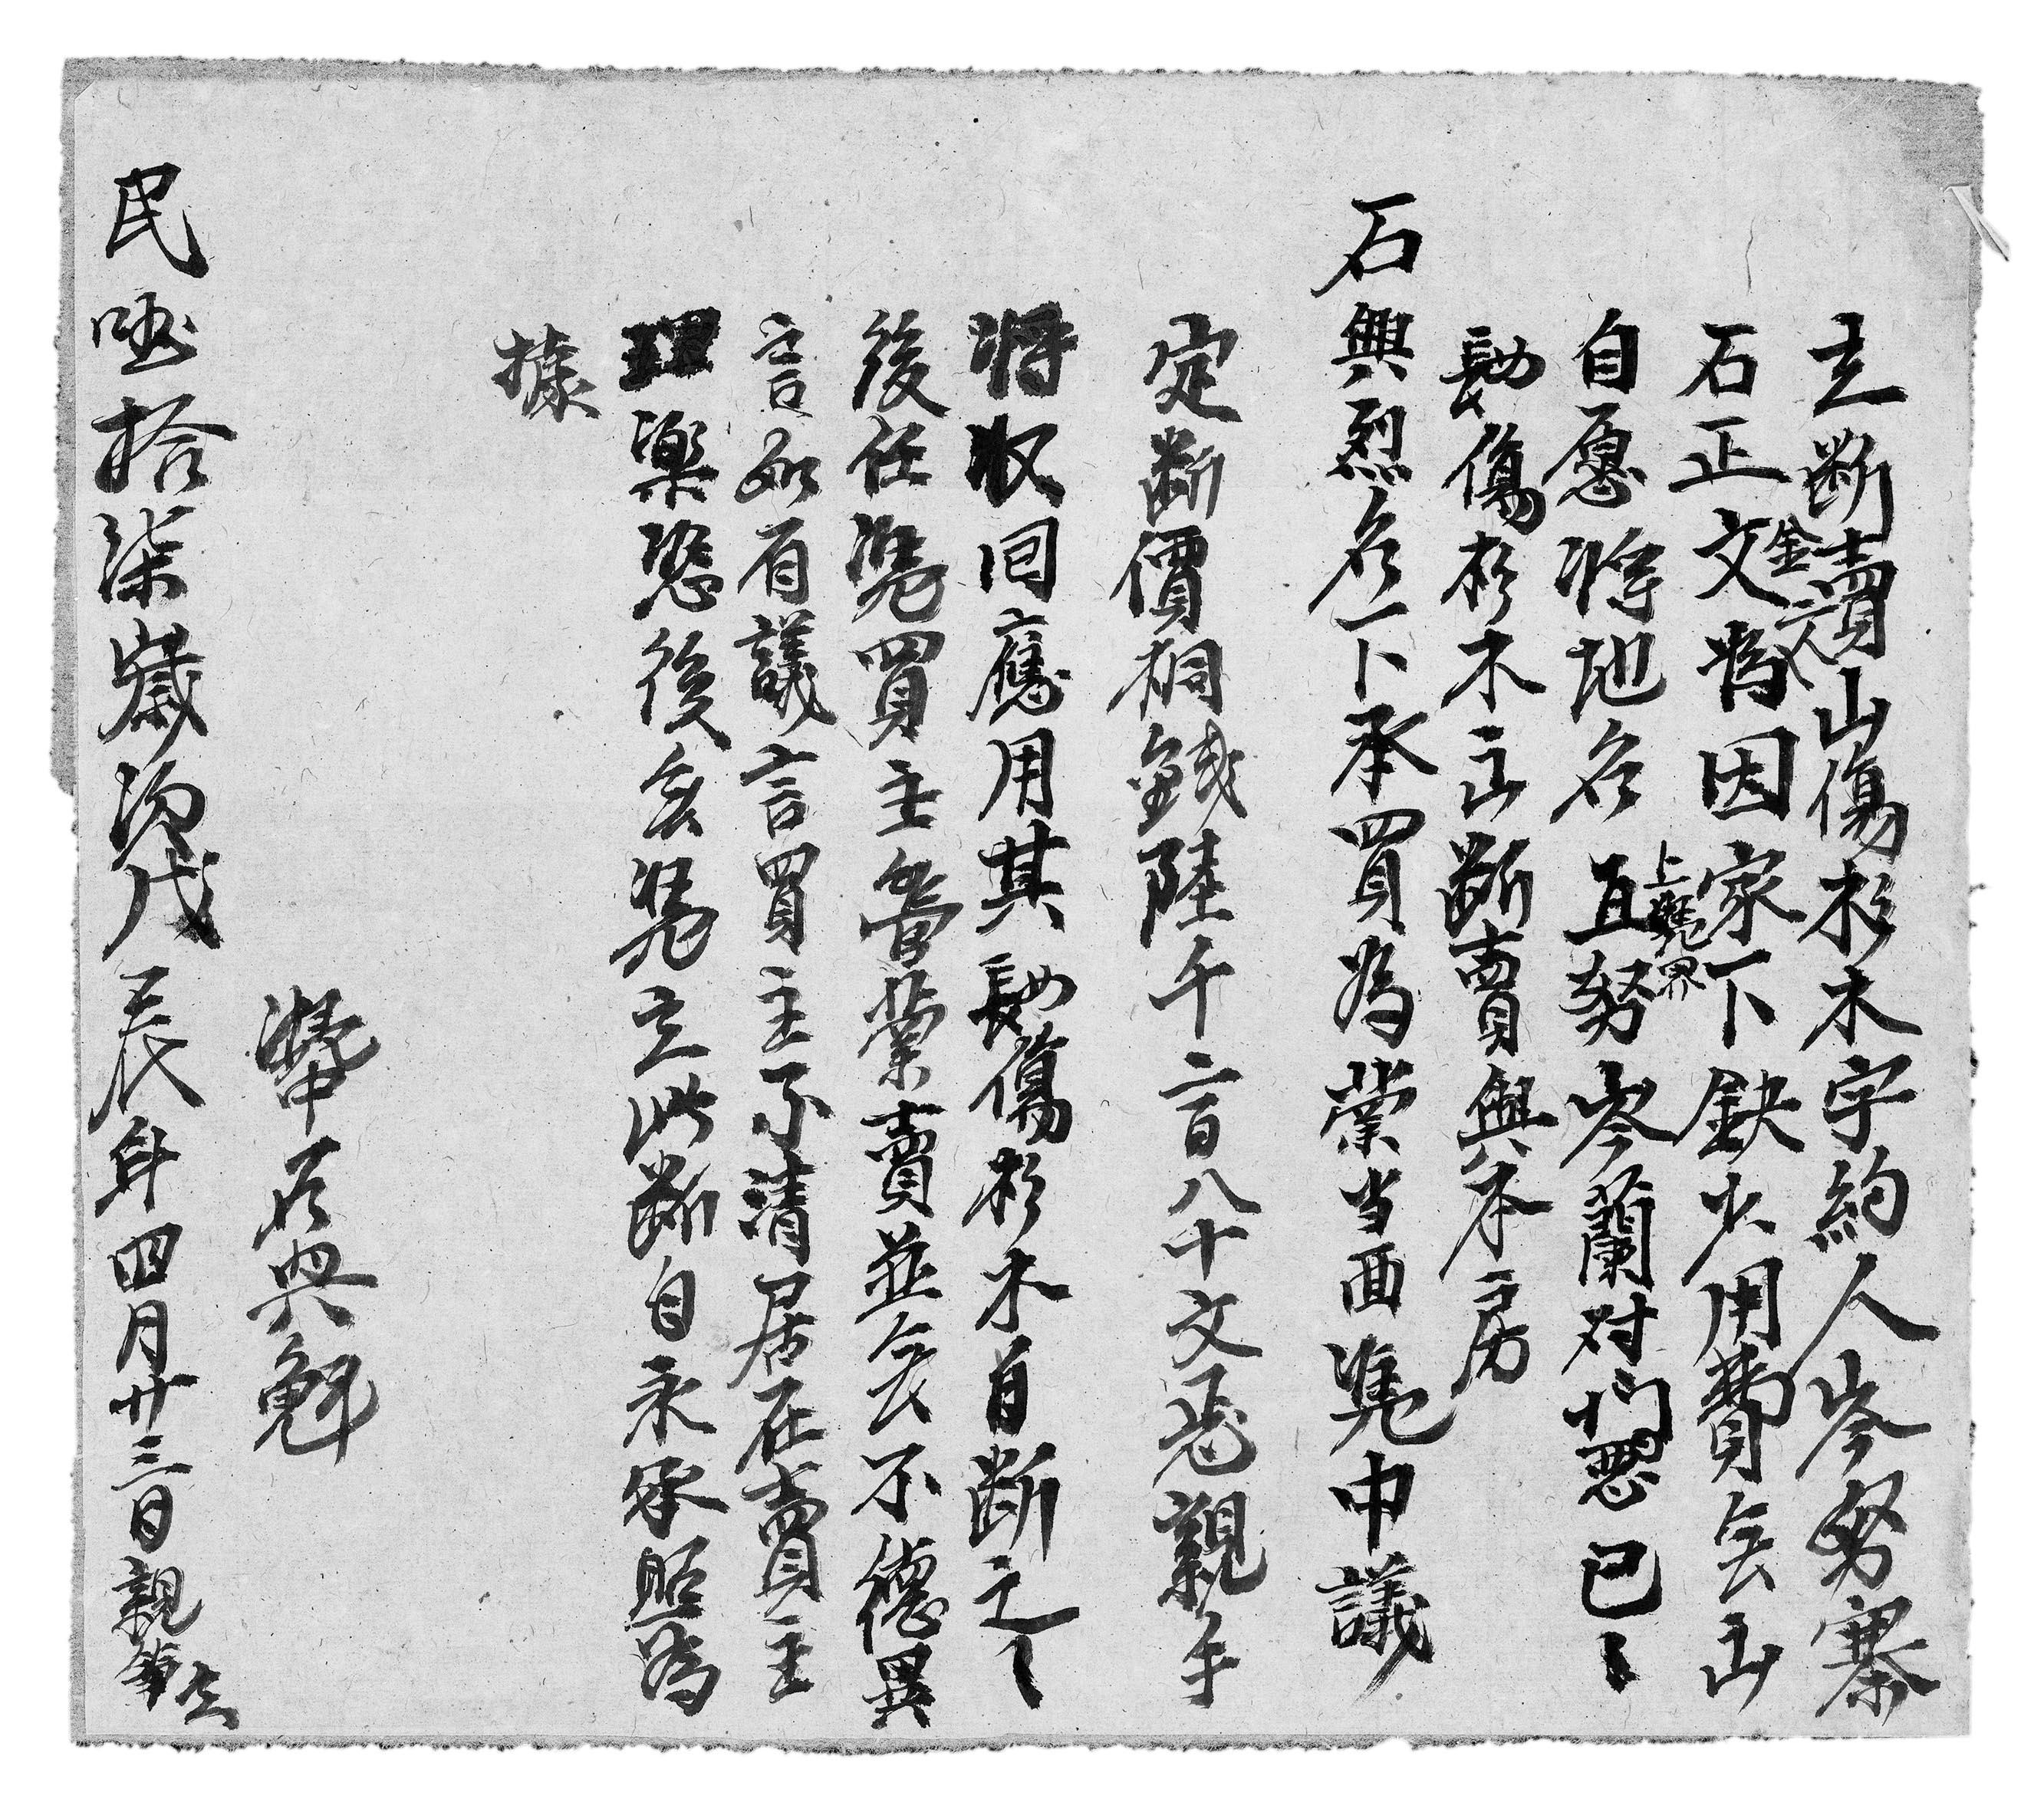 立断賣山傷杉木字約人岑努寨
石正文為因家下缺少用費無山
金 二人
自愿將地名且努岑蘭对门恐已
上凴界
傷杉木山断賣與本房
石興烈名下承買為業当面凴中議
定断價桐錢陸千二百八十文足親手
將収回應用其傷杉木自断之
後任凴買主管業賣並無不德異
言如有議言買主不清居在賣主
理樂恐後無凴立此断自永承照為
據
凴中石興魁
民國拾柒歲次戊辰年四月廿三日親筆立